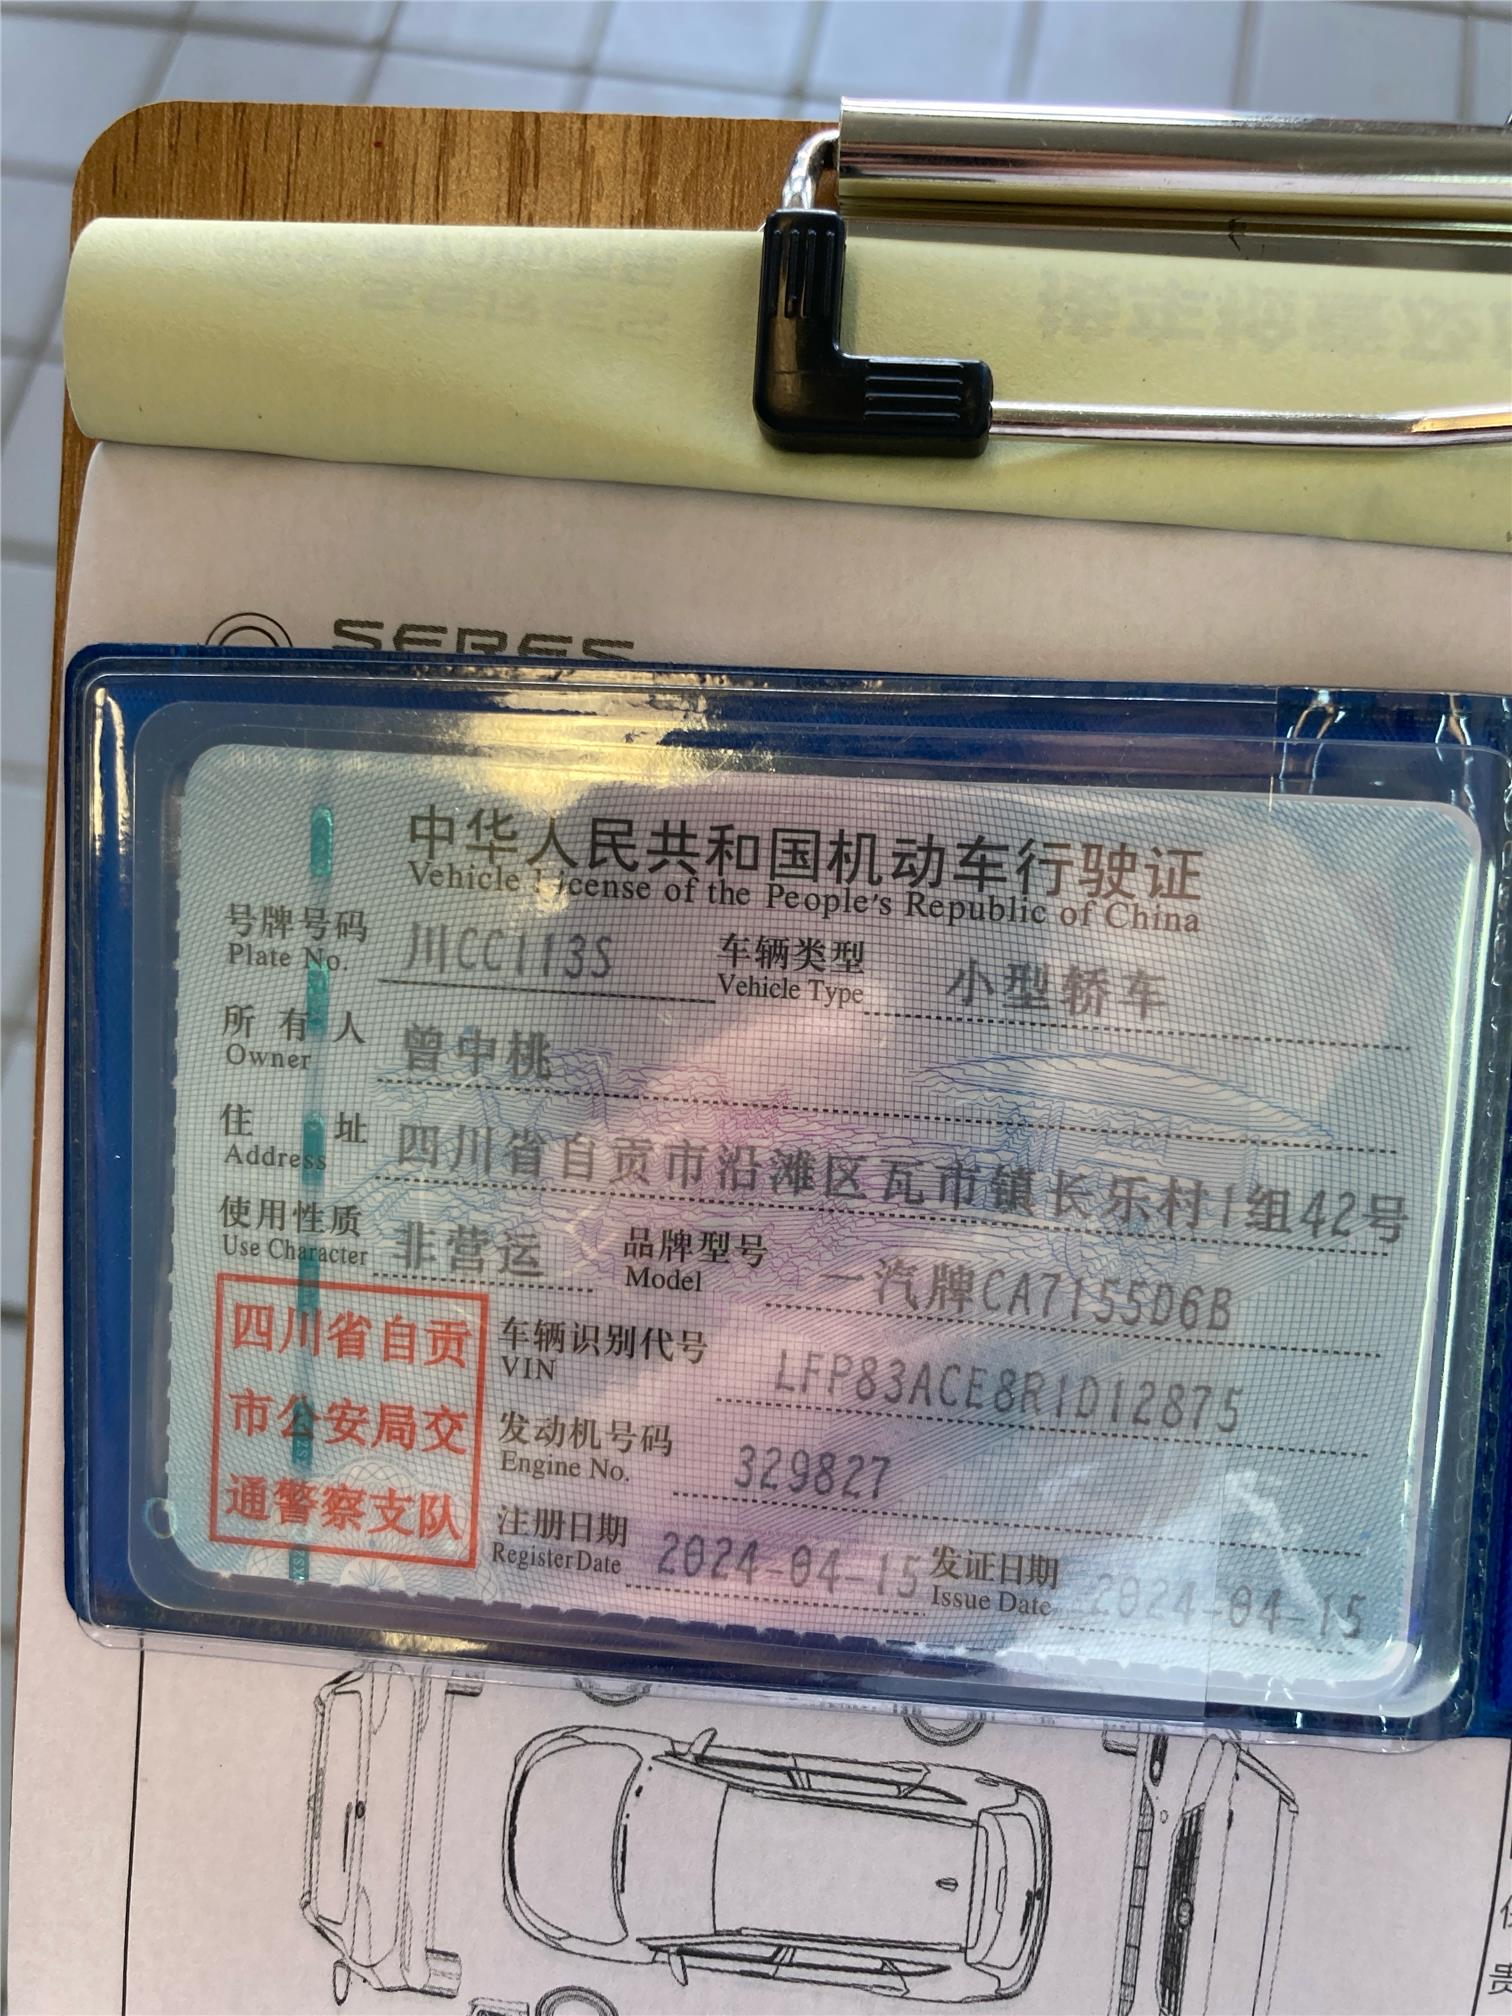 SERES
中华人民共和国机动车行驶证
Vehicle License of the People's Republic of China
号牌号码 川CC113S 车辆类型 小型轿车
Plate No. Vehicle Type
所有人 曾中桃
Owner
住址 四川省自贡市沿滩区瓦市镇长乐村1组42号
Address
使用性质 非营运 品牌型号 一汽牌CA7155D6B
Use Character Model
四川省自贡
市公安局交
通警察支队
车辆识别代号 LFP83ACE8R1D12875
VIN
发动机号码 329827
Engine No.
注册日期 2024-04-15 发证日期 2024-04-15
Register Date Issue Date